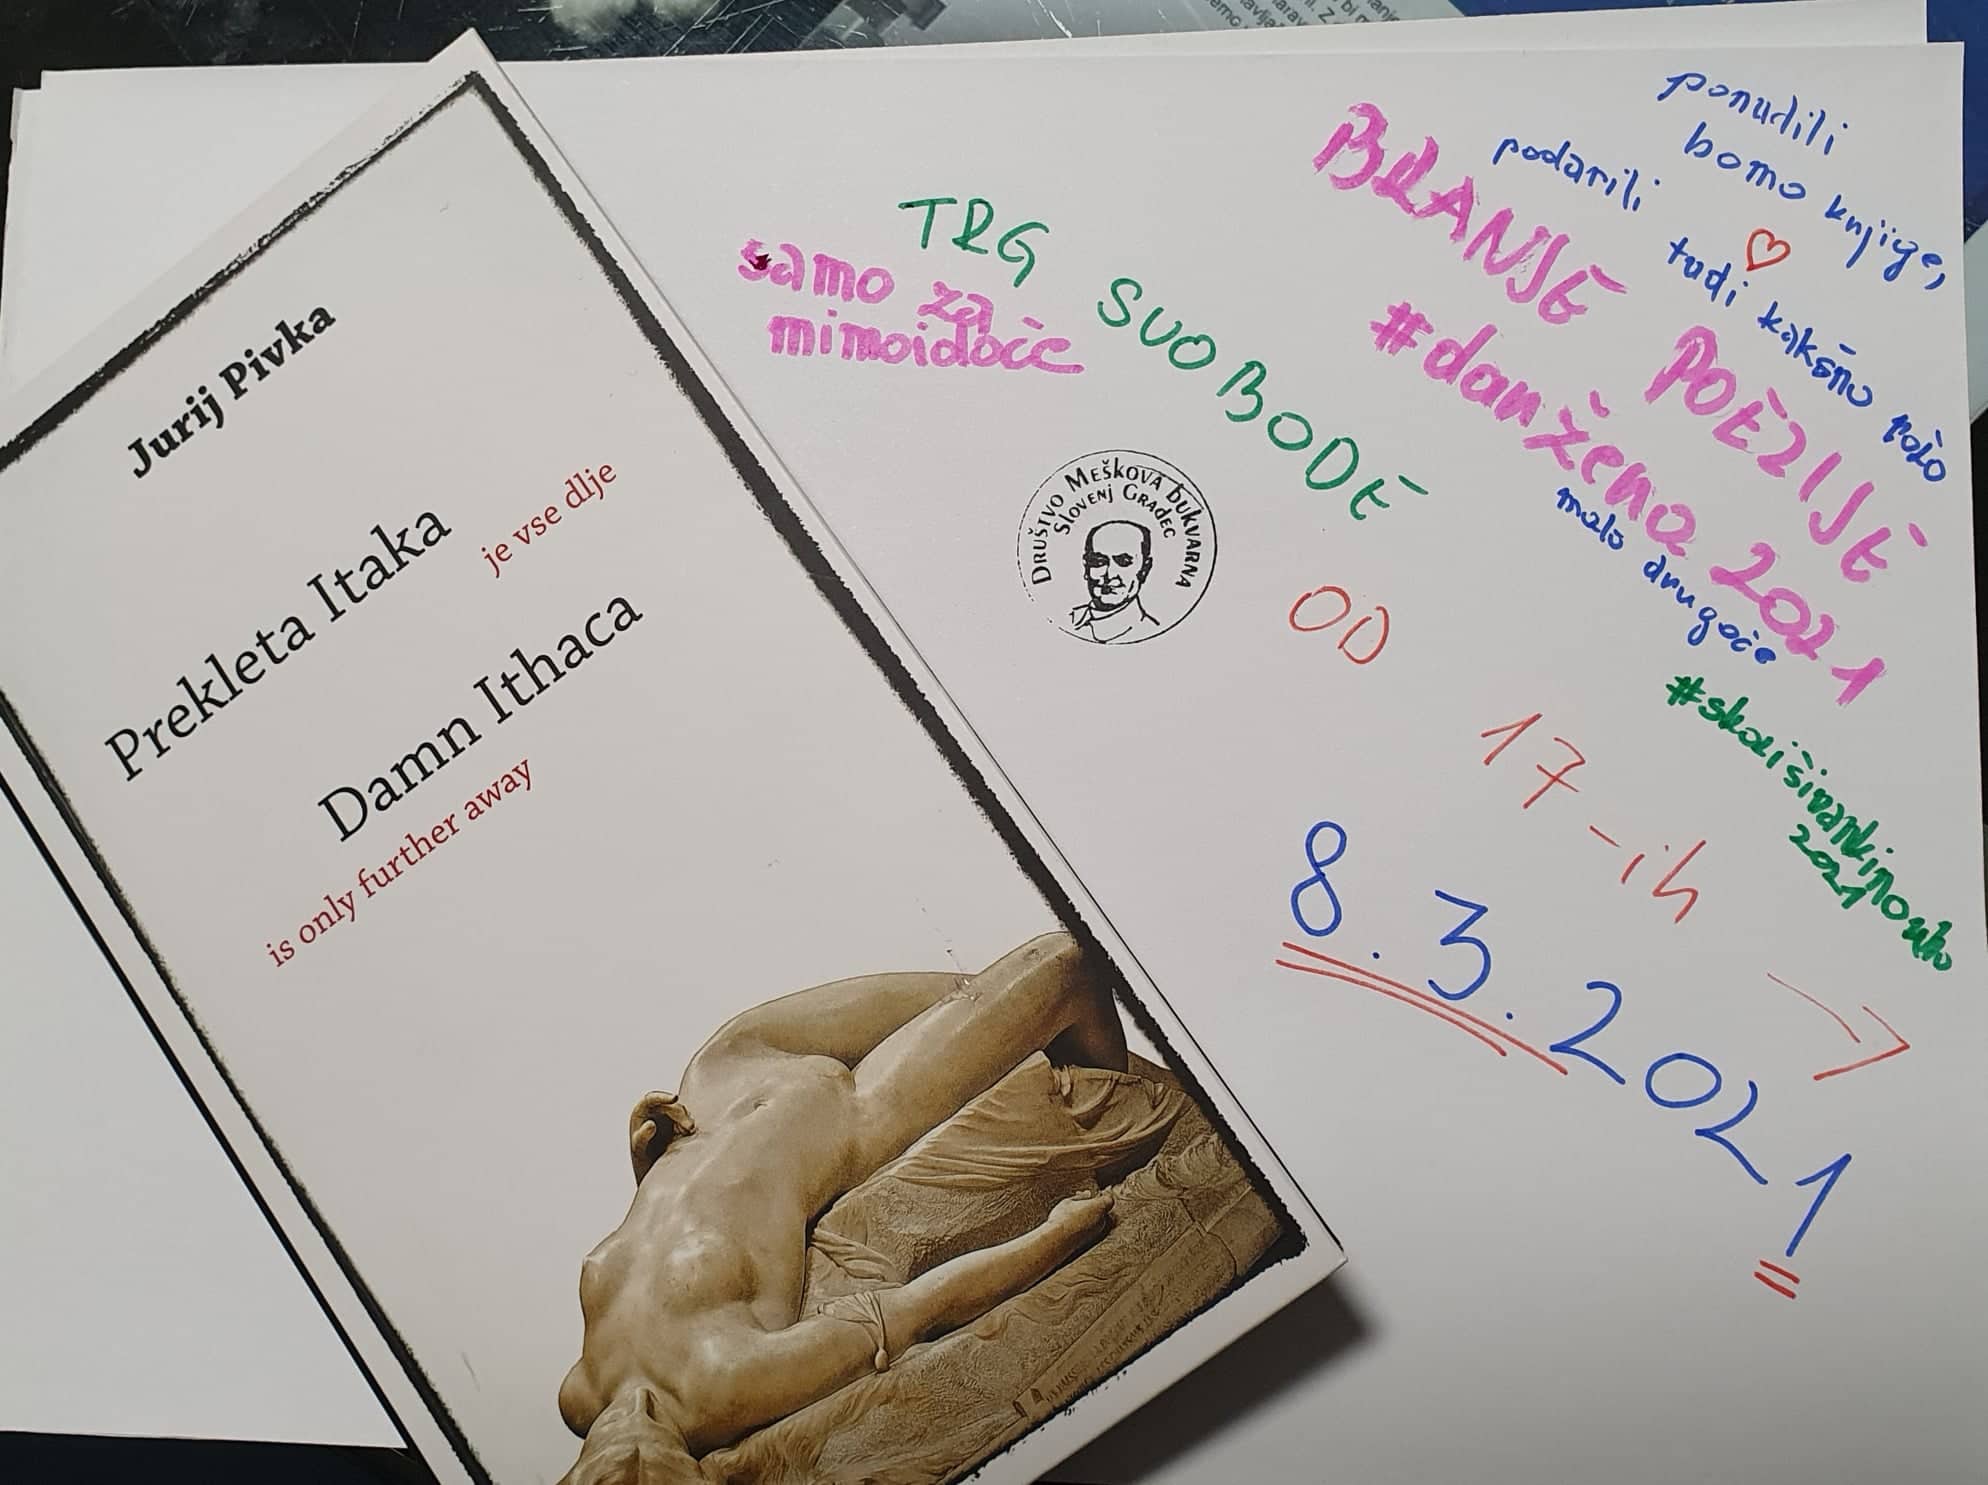 Jurij Pivka
Prekleta Itaka
je vse dlje
Damn Ithaca
is only further away
TRG SVOBODE
samo za
mimoidoče
DRUŠTVO MEŠKOVA bUKVARNA
SlOVENj GRAdEC
OD
17-ih
8.3.2021
ponudili
bomo knjige,
podarili
tudi kakšno rožo
BRANJE POEZIJE
#danžena 2021
malo drugače
2021